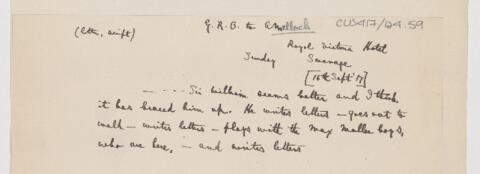 (letter, script) G. R. B. to A Mallock CUSV17/DA.59
Royal Victoria Hotel
Sunday Swanage
[16th Sept '17]
– – – – Sir William seems better and I think
it has braced him up. He writes letters – goes out to
walk – writes letters – plays with the Max Muller boys,
who are here, – and writes letters